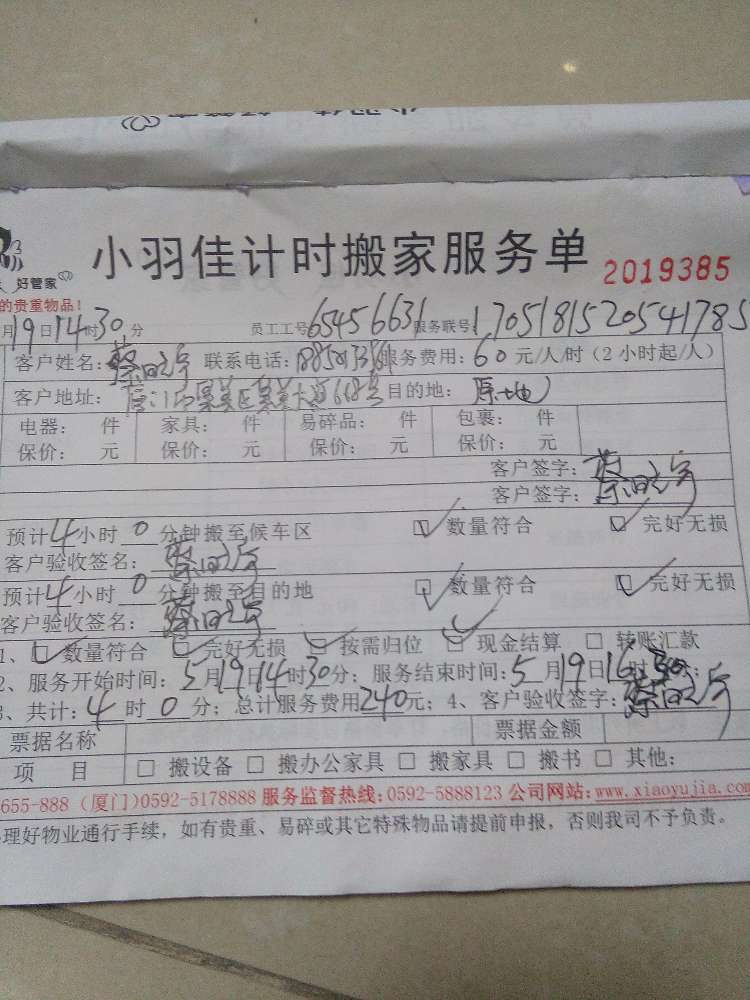 小羽佳计时搬家服务单 2019385
好管家
的贵重物品!
月19日14时30分 员工工号65456631服务联号1705181520541785
客户姓名: 联系电话: 服务费用:60元/人/时(2小时起/人)
客户地址:厦门市集美区集美大道668号目的地:原地
电器: 件 家具: 件 易碎品: 件 包裹: 件
保价: 元 保价: 元 保价: 元 保价: 元
客户签字:
客户签字:
预计4小时0分钟搬至候车区 数量符合 完好无损
客户验收签名:
预计4小时0分钟搬至目的地 数量符合 完好无损
客户验收签名:
1、数量符合 完好无损 按需归位 现金结算 转账汇款
2、服务开始时间:5月19日14时30分;服务结束时间:5月19日16时30分;
3、共计:4时0分;总计服务费用240元;4、客户验收签字:
票据名称 票据金额
项目 搬设备 搬办公家具 搬家具 搬书 其他:
655-888(厦门)0592-5178888 服务监督热线:0592-5888123 公司网站:www.xiaoyujia.com
理好物业通行手续,如有贵重、易碎或其它特殊物品请提前申报,否则我司不予负责。